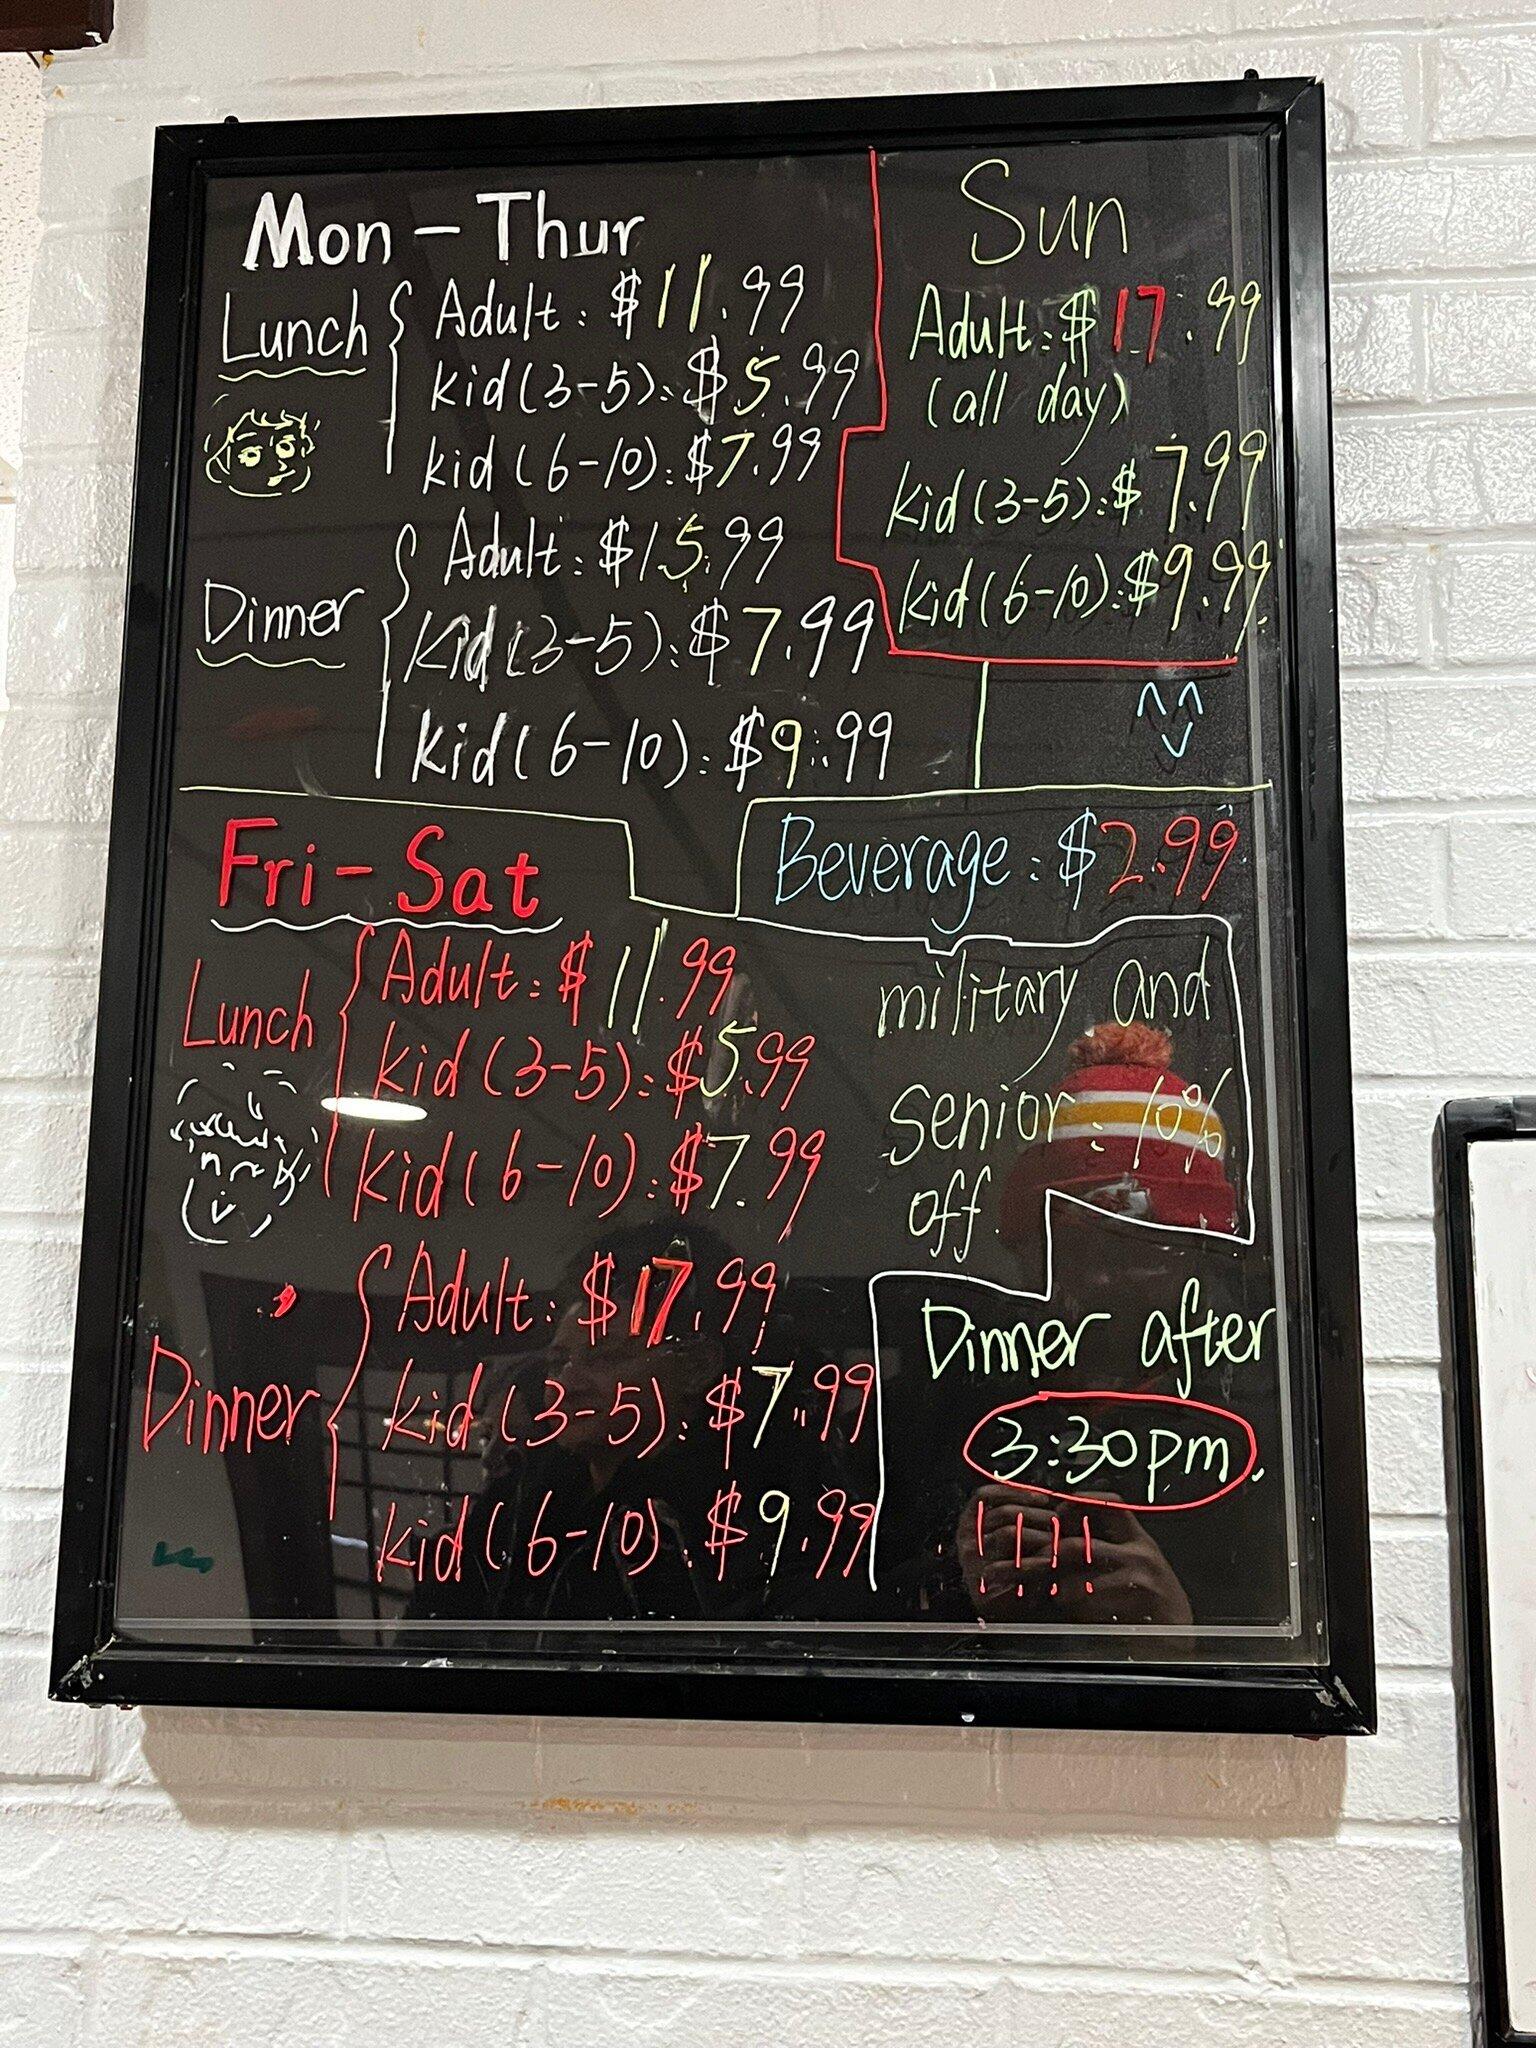 Mon - Thur
Lunch
Adult: $11.99
kid (3-5): $5.99
kid (6-10): $7.99
Dinner
Adult: $15.99
kid (3-5): $7.99
kid (6-10): $9.99
Sun
Adult: $17.99
(all day)
kid (3-5): $7.99
kid (6-10): $9.99
Fri - Sat
Lunch
Adult: $11.99
kid (3-5): $5.99
kid (6-10): $7.99
Dinner
Adult: $17.99
kid (3-5): $7.99
kid (6-10): $9.99
Beverage: $2.99
military and
senior: 10%
off.
Dinner after
3:30pm.
!!!!